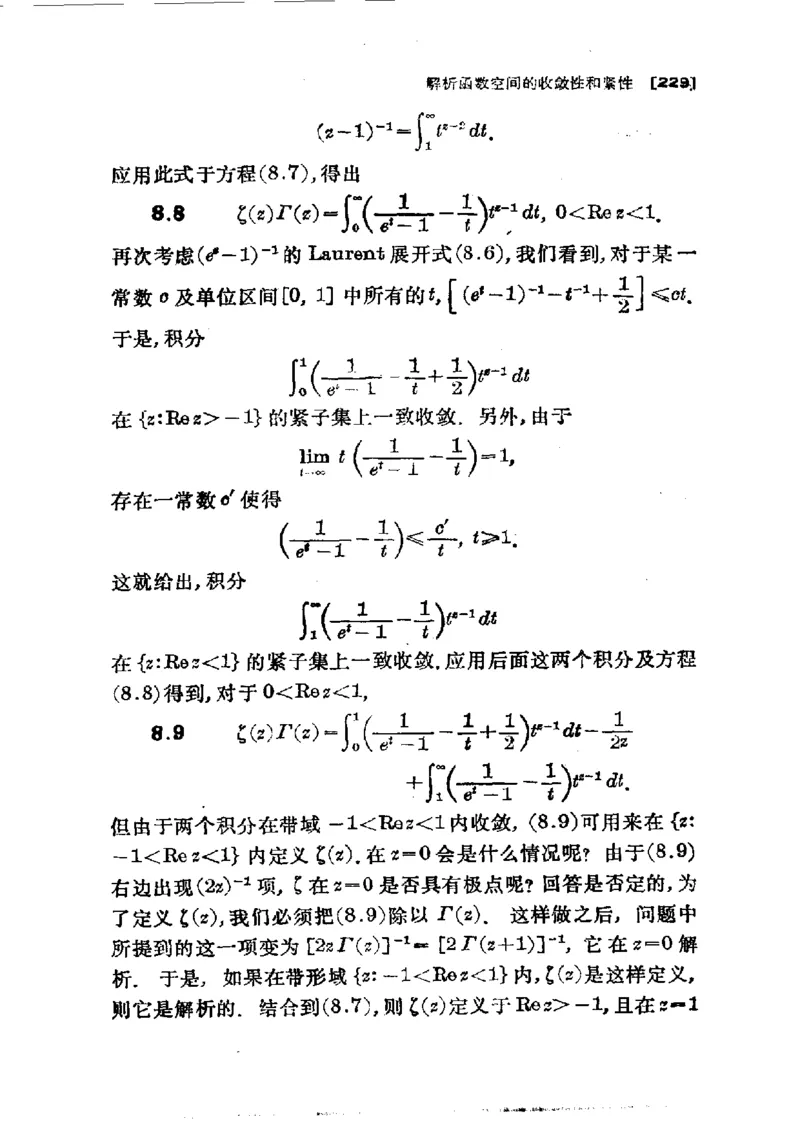 解析函数空间的收敛性和紧性 [229]
(z-1)⁻¹=∫₁^∞ t^{z-2}dt.
应用此式于方程(8.7),得出
8.8 ζ(z)Γ(z)=∫₀^∞(1/(e^t-1)-1/t)t^{z-1}dt, 0<Re z<1.
再次考虑(e^t-1)⁻¹的 Laurent 展开式(8.6),我们看到,对于某一
常数 c 及单位区间[0, 1]中所有的t, [(e^t-1)⁻¹-t⁻¹+1/2]≤ct.
于是,积分
∫₀¹(1/(e^t-1)-1/t+1/2)t^{z-1}dt
在{z:Re z>-1}的紧子集上一致收敛. 另外,由于
lim_{t→∞} t(1/(e^t-1)-1/t)=1,
存在一常数 c′ 使得
(1/(e^t-1)-1/t)≤c′/t, t≥1.
这就给出,积分
∫₁^∞(1/(e^t-1)-1/t)t^{z-1}dt
在{z:Re z<1}的紧子集上一致收敛.应用后面这两个积分及方程
(8.8)得到,对于 0<Re z<1,
8.9 ζ(z)Γ(z)=∫₀¹(1/(e^t-1)-1/t+1/2)t^{z-1}dt-1/2z
+∫₁^∞(1/(e^t-1)-1/t)t^{z-1}dt.
但由于两个积分在带域 -1<Re z<1内收敛, (8.9)可用来在{z:
-1<Re z<1}内定义ζ(z).在 z=0会是什么情况呢? 由于(8.9)
右边出现(2z)⁻¹项, ζ在 z=0是否具有极点呢? 回答是否定的,为
了定义ζ(z),我们必须把(8.9)除以Γ(z). 这样做之后, 问题中
所提到的这一项变为[2zΓ(z)]⁻¹=[2Γ(z+1)]⁻¹, 它在 z=0 解
析. 于是, 如果在带形域{z: -1<Re z<1}内,ζ(z)是这样定义,
则它是解析的. 结合到(8.7),则ζ(z)定义于 Re z>-1,且在 z=1